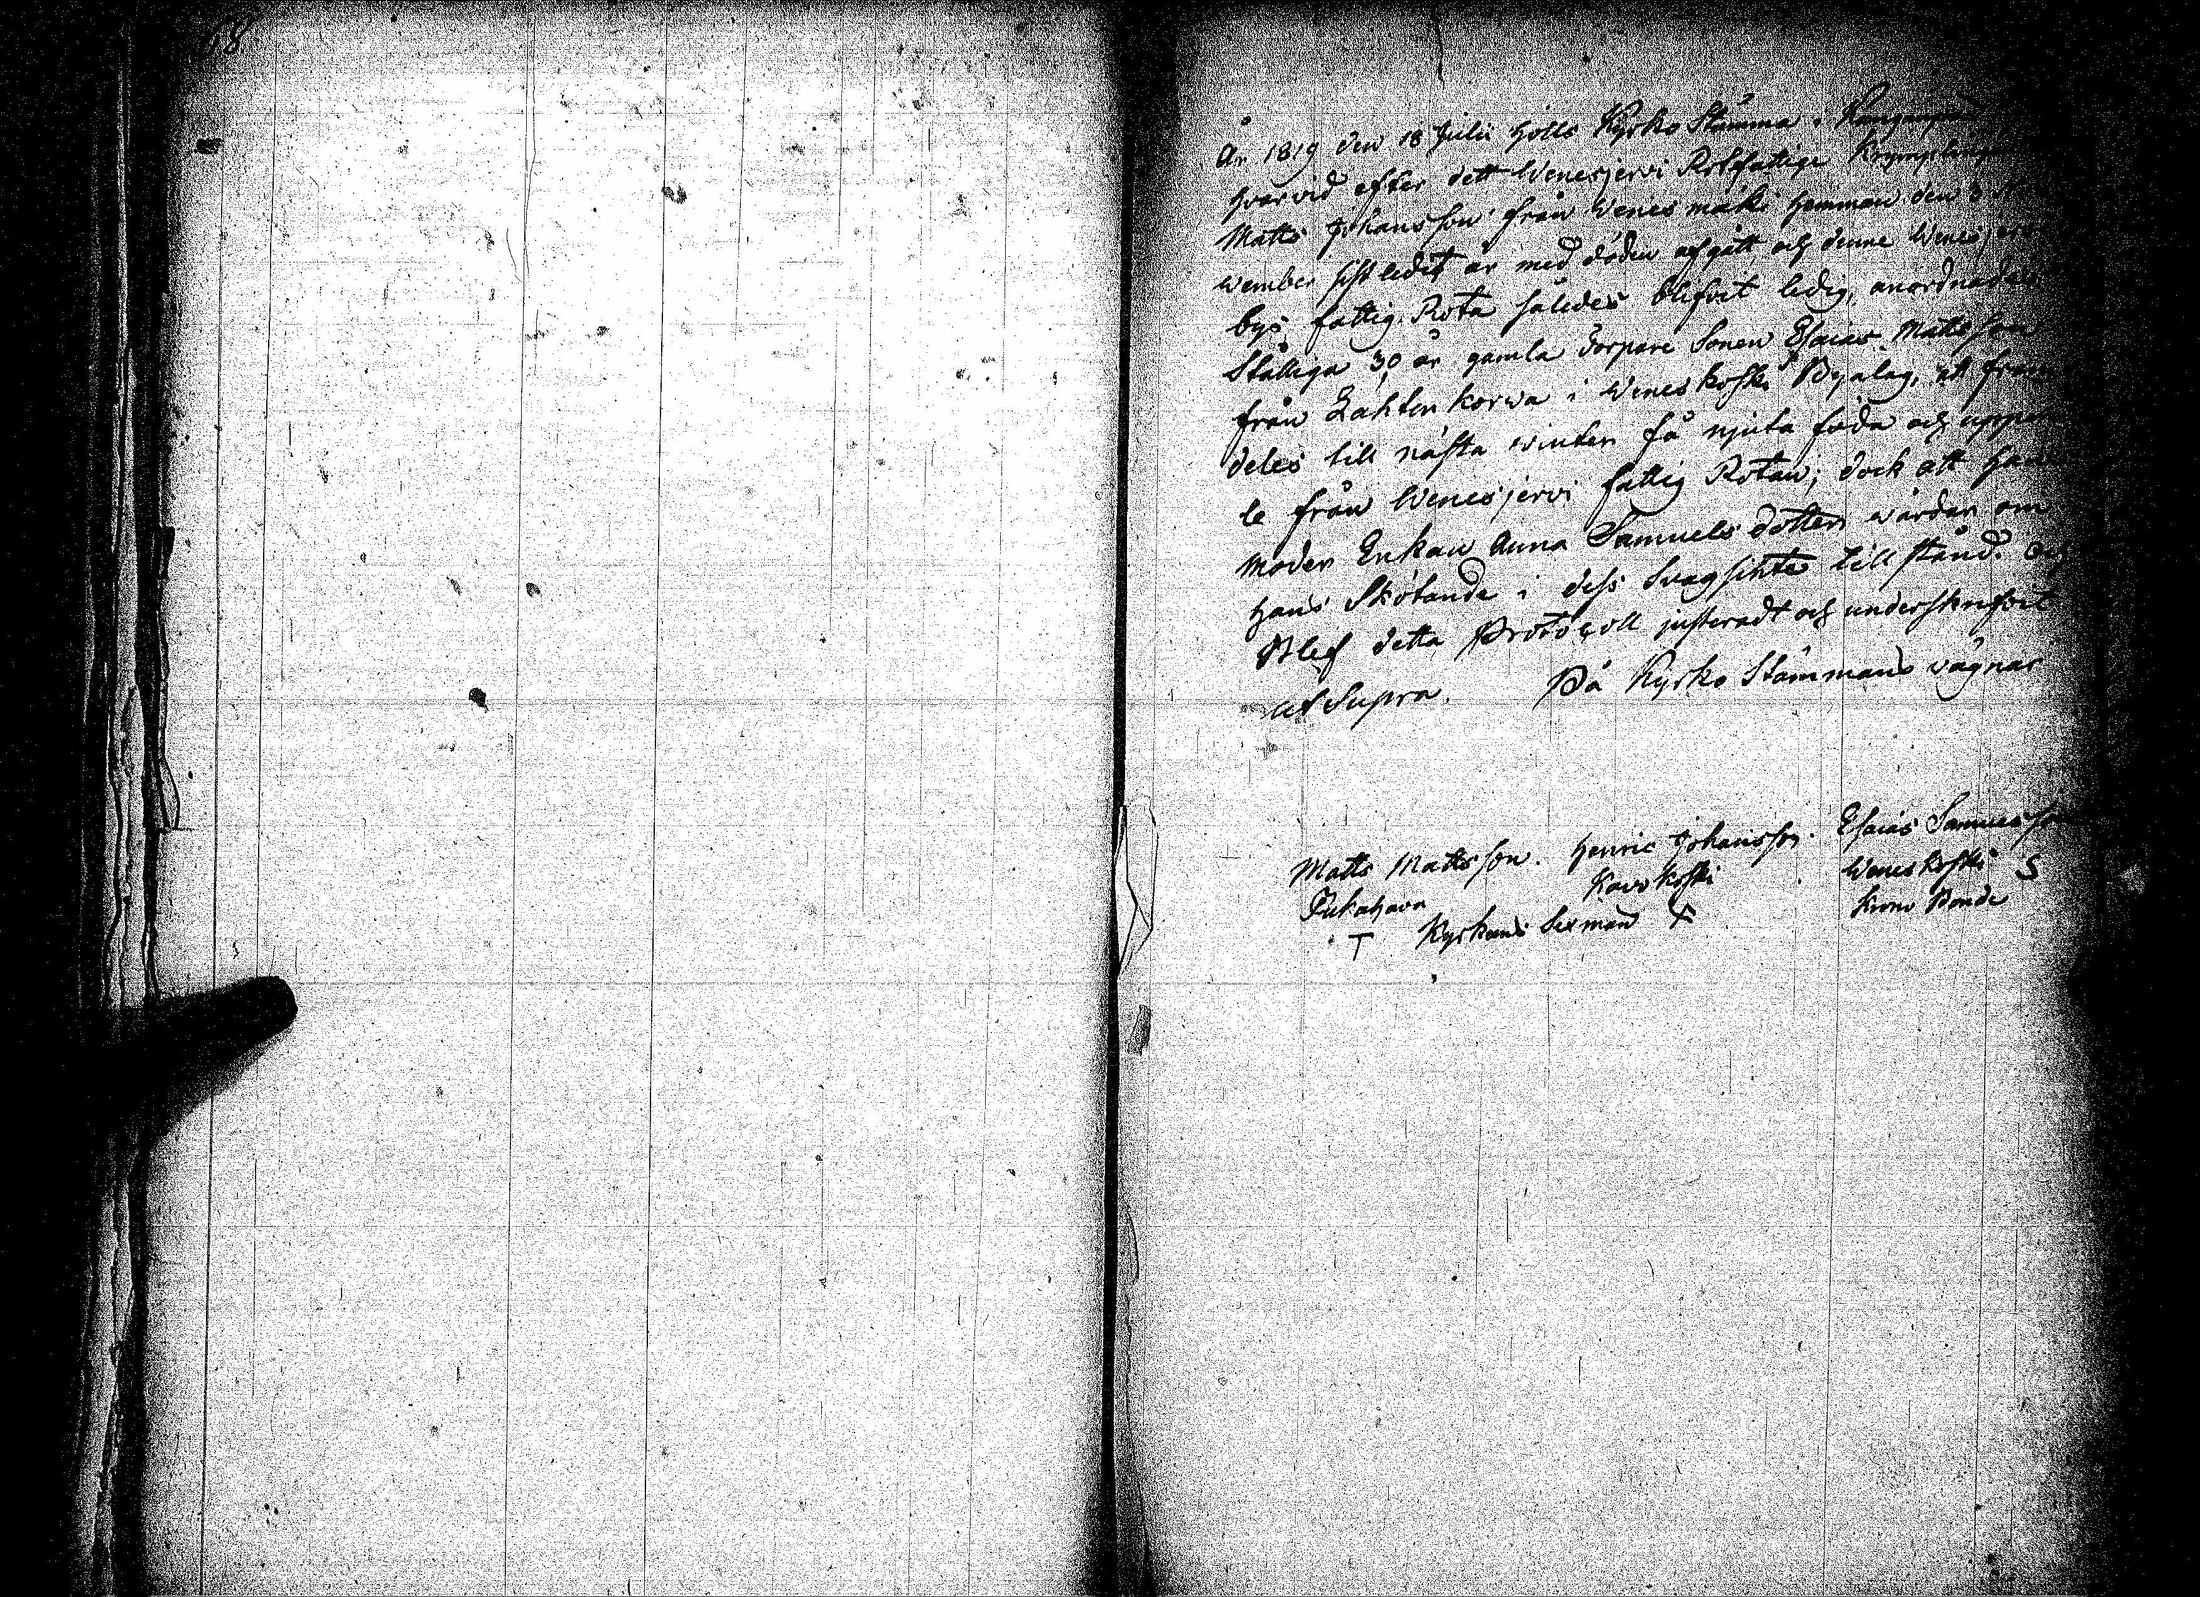 68
År 1819 den 18 Julii hölls Kyrko Stämma i
hvarvid efter dett Wenesjervi Rotefattige
Matts Johansson från Wenesmäki hemman den 3
wember sistledit år med döden afgått, och denne Wenesjervi
bys fattig Rota således blifvit ledig, anordnades
Ståliga 30 år gamla Torpare Sonen Esaias Mattsson
från Lahtenkorwa i Weneskoski Byalag, att fram
deles till nästa winter få njuta föda och uppe
le från Wenesjervi fattig Rotan; dock att hans
moder Enkan Anna Samuels dotter wårdar om
hans Skötande i dess Svagsinte tillstånd. Och
Blef detta Protocoll justeradt och underskrifvit
ut Supra. På Kyrko Stämmans vägnar
Matts Mattsson. Henric Johansson. Esaias Samuelsson
Pukahara Kavokoski Weneskoski S
T Kyrkans Sexmän Krono Bonde